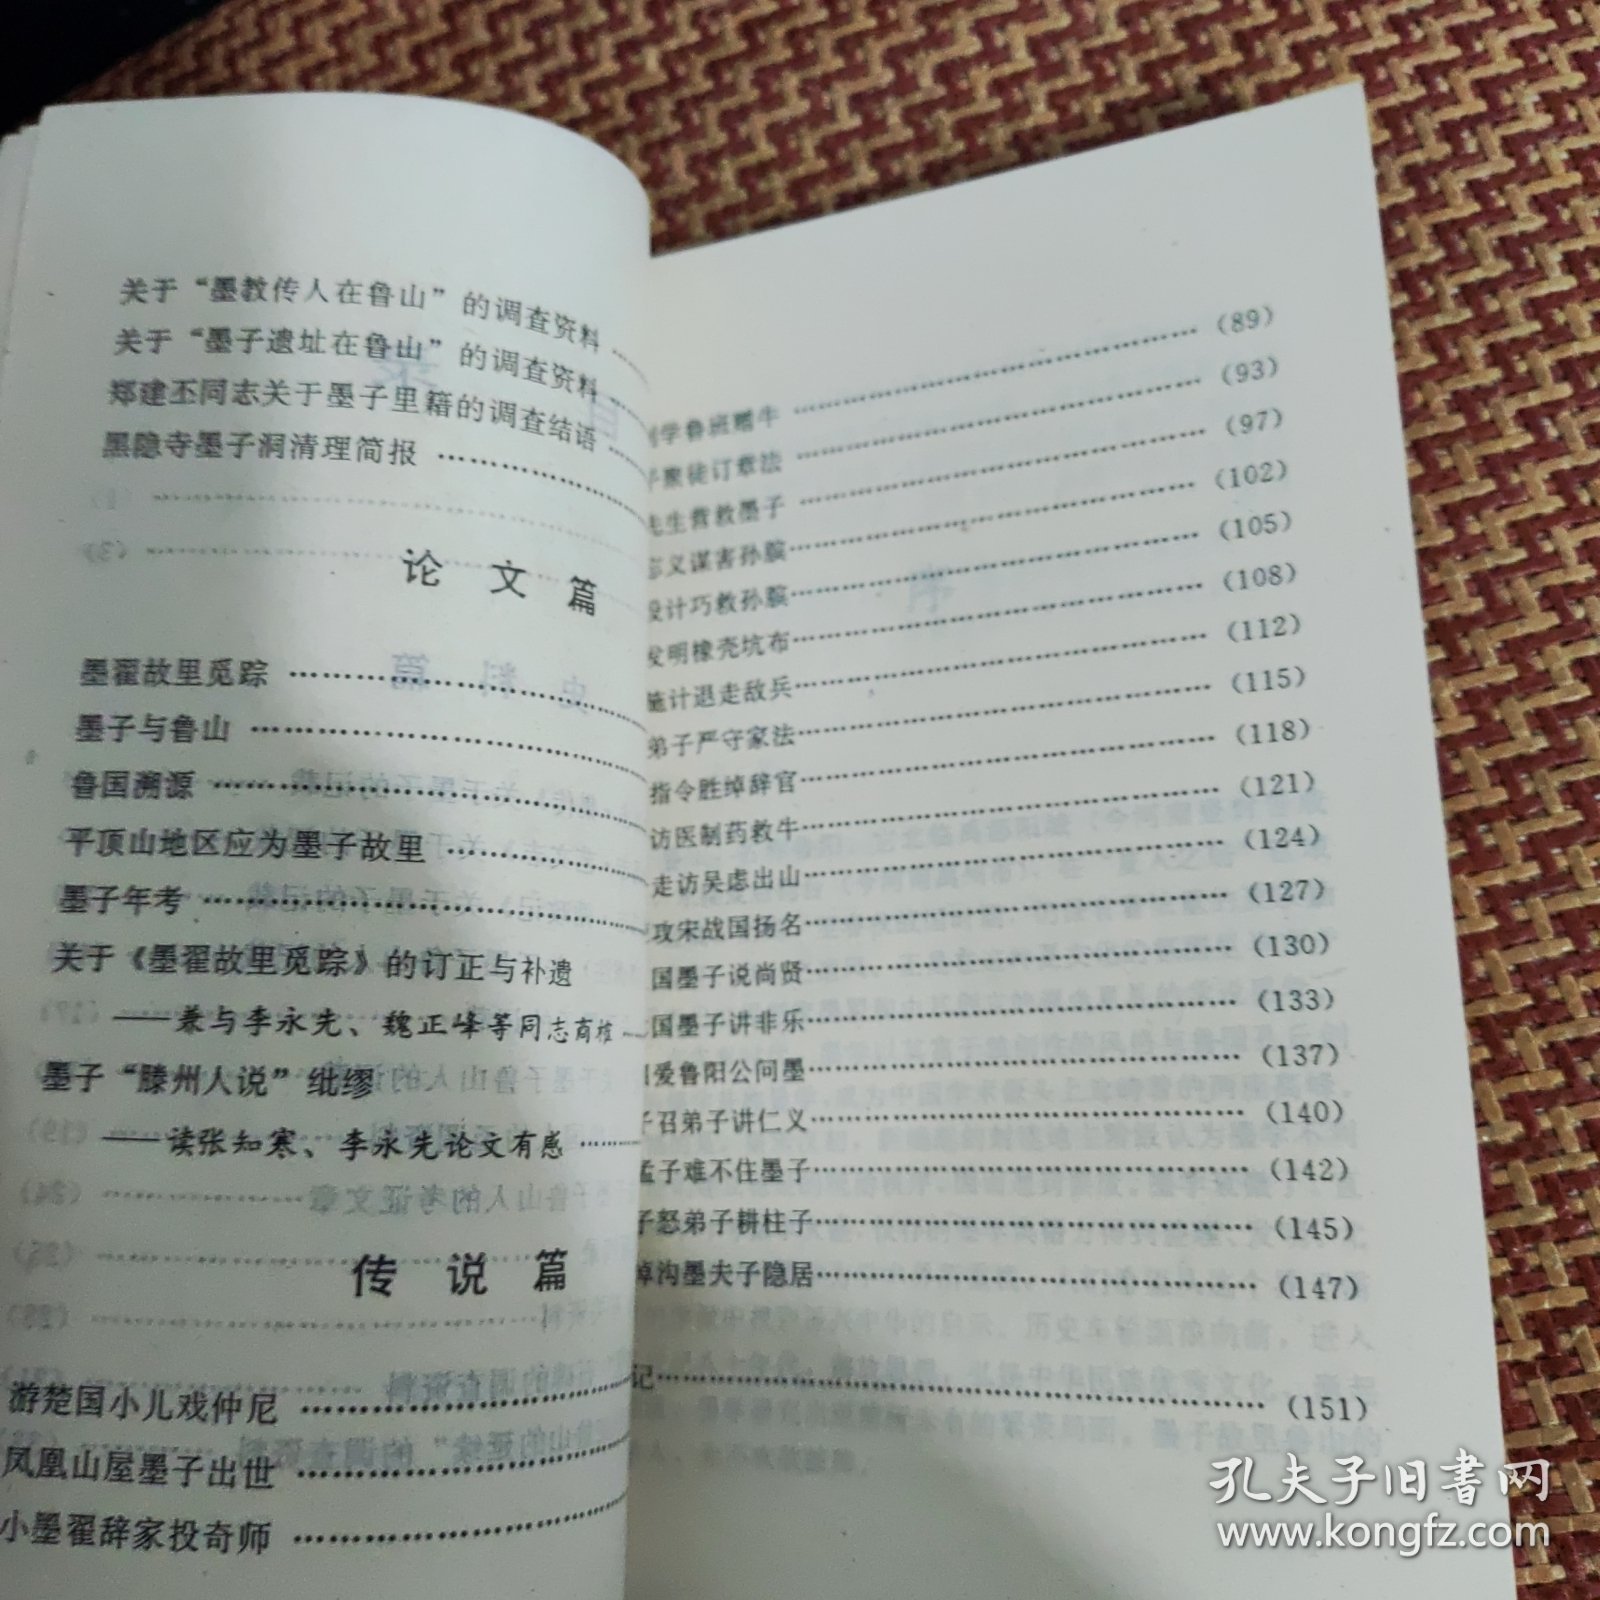 关于“墨教传人在鲁山”的调查资料
关于“墨子遗址在鲁山”的调查资料
郑建丕同志关于墨子里籍的调查结语
黑隐寺墨子洞清理简报
论文篇
墨翟故里觅踪
墨子与鲁山
鲁国溯源
平顶山地区应为墨子故里
墨子年考
关于《墨翟故里觅踪》的订正与补遗
——兼与李永先、魏正峰等同志商榷
墨子“滕州人说”纰缪
——读张知寒、李永先论文有感
传说篇
游楚国小儿戏仲尼
凤凰山屋墨子出世
小墨翟辞家投奇师
学鲁班赠牛 (89)
子聚徒订章法 (93)
先生营救墨子 (97)
忘义谋害孙膑 (102)
设计巧救孙膑 (105)
发明橡壳坑布 (108)
施计退走敌兵 (112)
弟子严守家法 (115)
指令胜绰辞官 (118)
访医制药救牛 (121)
走访吴虑出山 (124)
攻宋战国扬名 (127)
国墨子说尚贤 (130)
国墨子讲非乐 (133)
爱鲁阳公问墨 (137)
子召弟子讲仁义 (140)
孟子难不住墨子 (142)
子怒弟子耕柱子 (145)
沟墨夫子隐居 (147)
记 (151)
孔夫子旧书网
www.kongfz.com